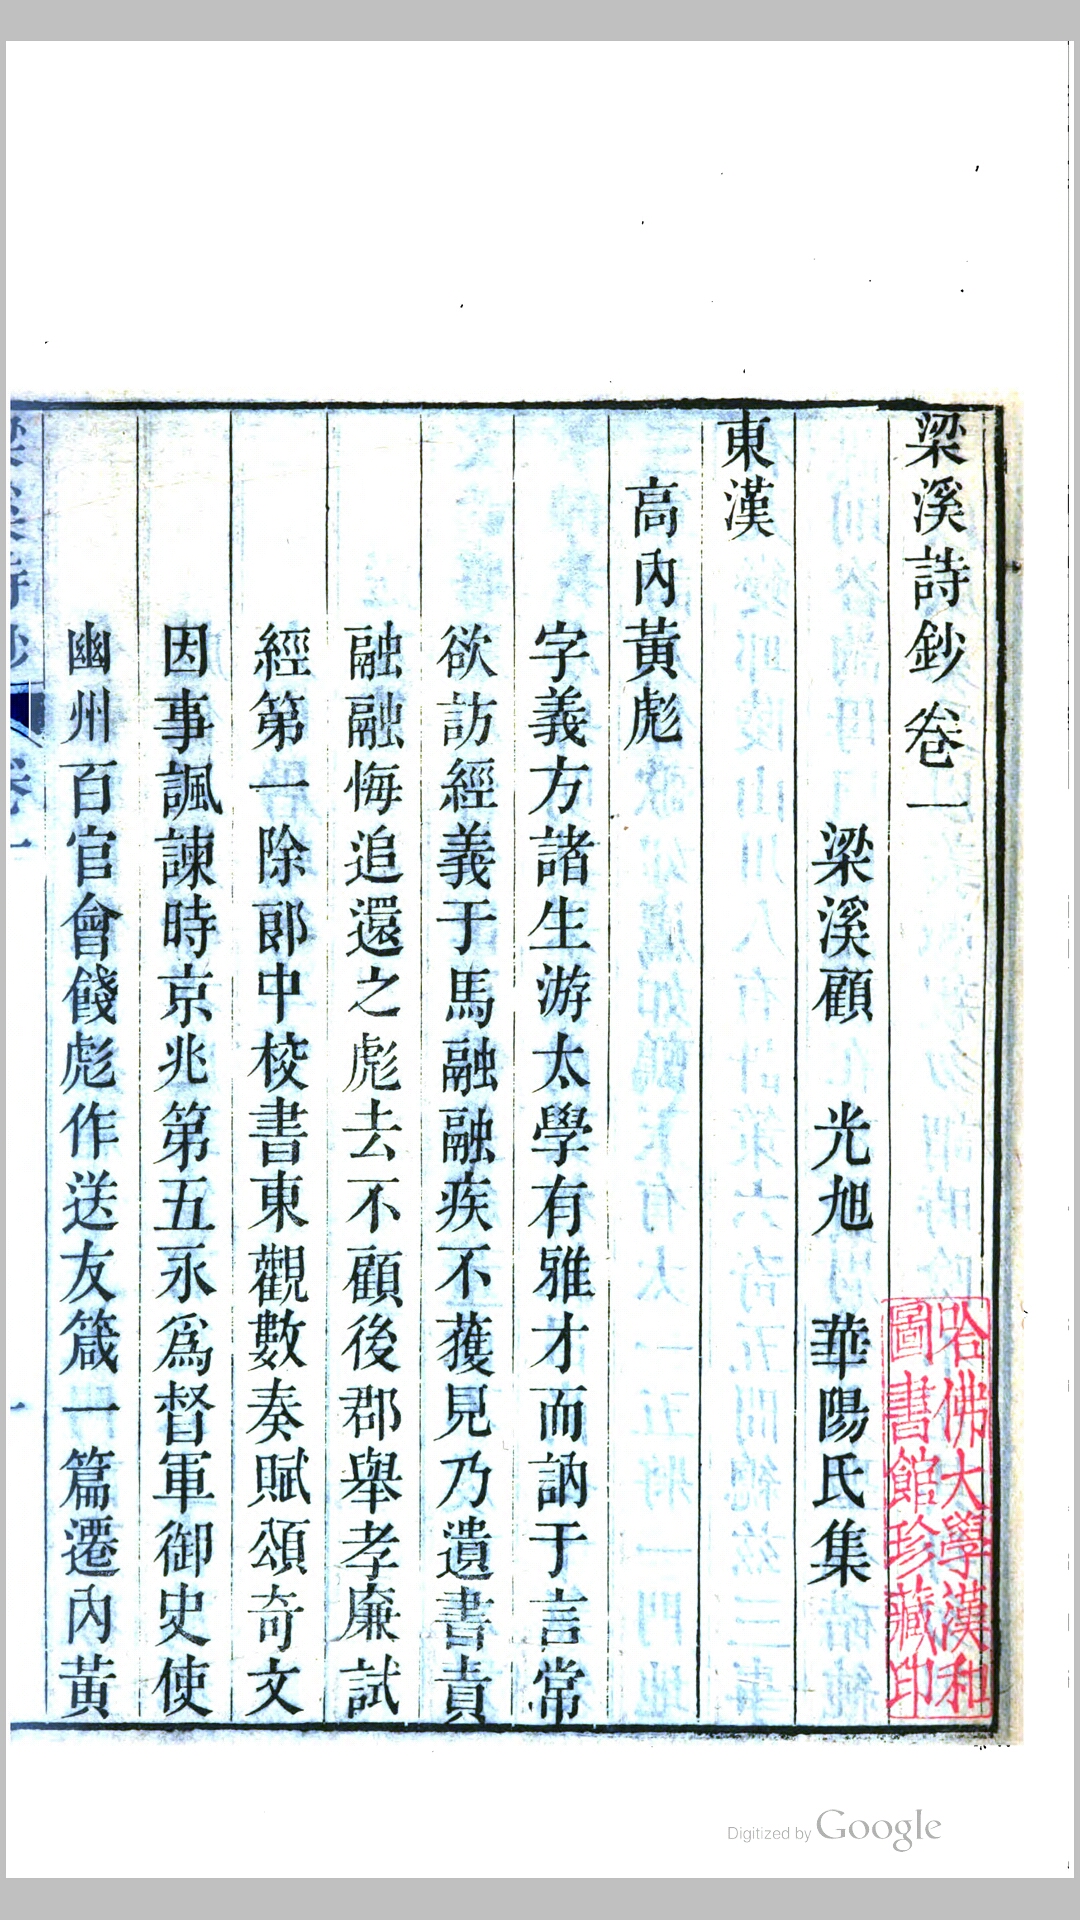 梁溪詩鈔卷一
梁溪顧 光旭 華陽氏集
東漢
高內黃彪
字義方諸生游太學有雅才而訥于言常
欲訪經義于馬融融疾不獲見乃遺書責
融融悔追還之彪去不顧後郡舉孝廉試
經第一除郎中校書東觀數奏賦頌奇文
因事諷諫時京兆第五永爲督軍御史使
幽州百官會餞彪作送友箴一篇遷內黃
哈佛大學漢和
圖書館珍藏印
Digitized by Google